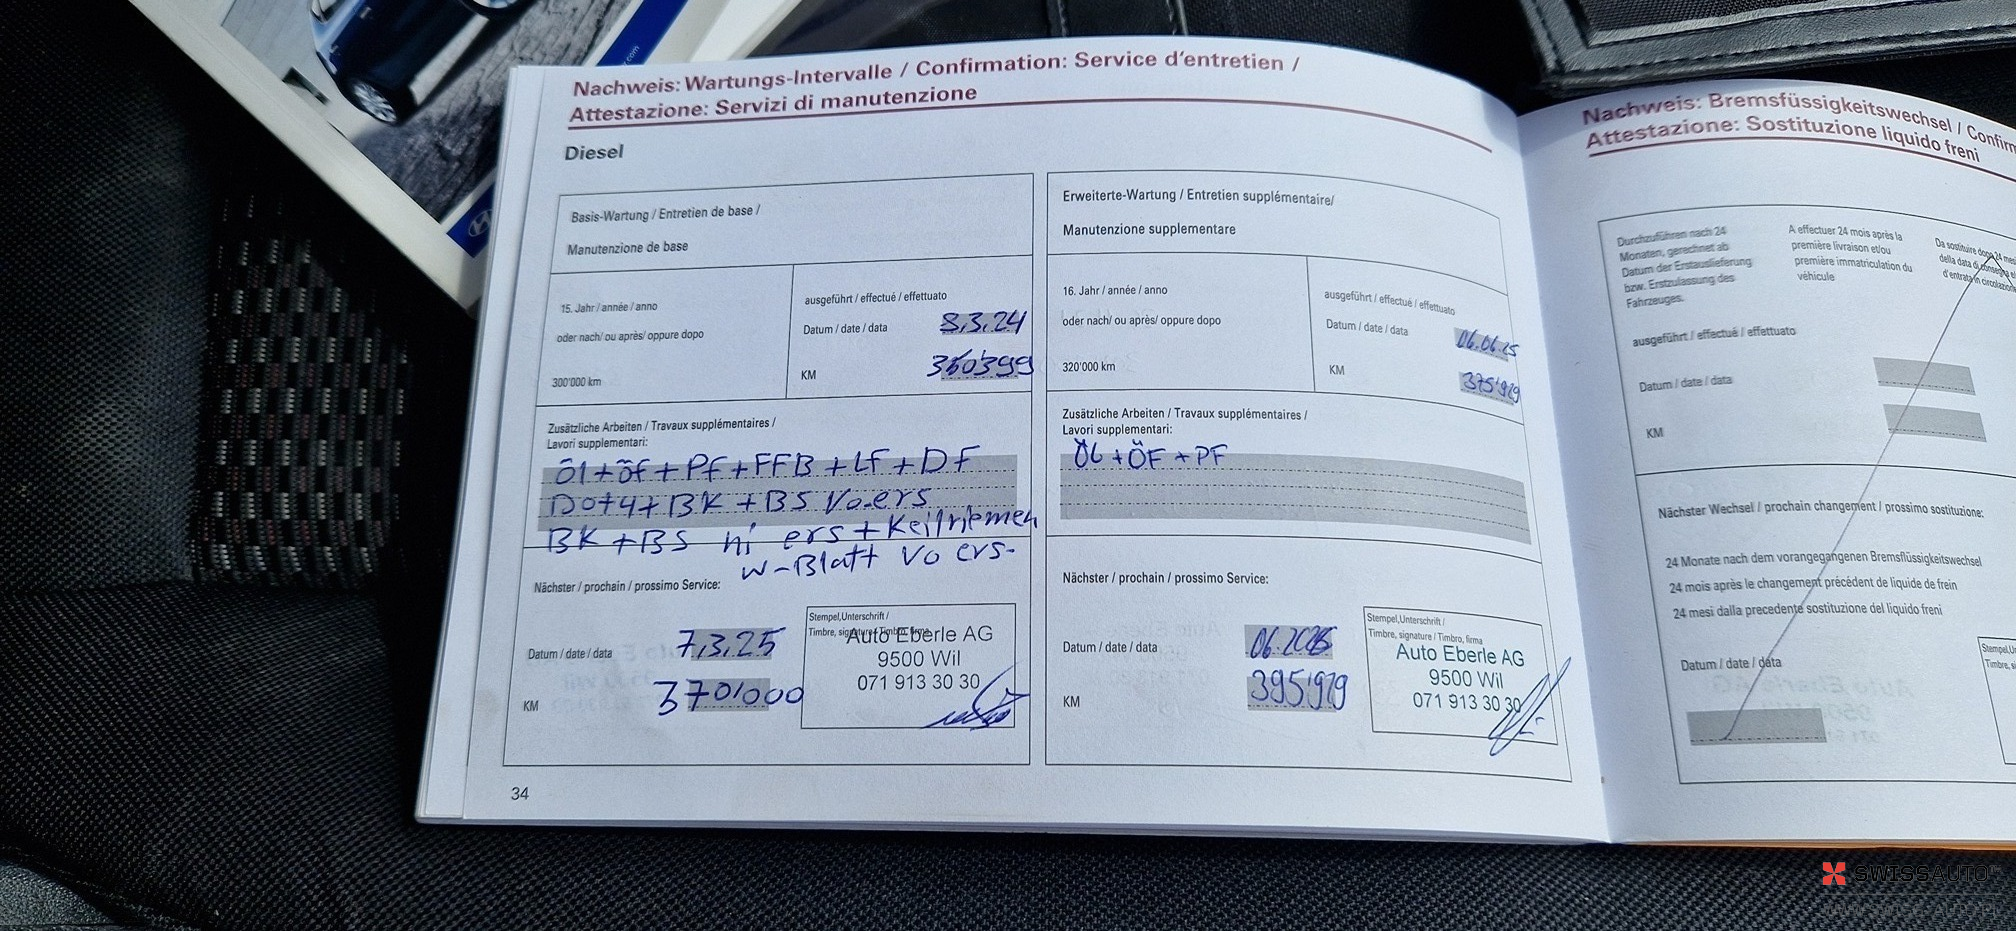 Nachweis: Wartungs-Intervalle / Confirmation: Service d'entretien /
Attestazione: Servizi di manutenzione
Diesel
Basis-Wartung / Entretien de base /
Manutenzione de base
15. Jahr / année / anno
oder nach/ ou après/ oppure dopo
300'000 km
ausgeführt / effectué / effettuato
Datum / date / data 8.3.24
KM 350'399
Zusätzliche Arbeiten / Travaux supplémentaires /
Lavori supplementari:
Öl+öf+Pf+FFB+Lf+DF
Dot4+BK+BS Vo-ers
BK+BS hi ers+Keilriemen
W-Blatt Vo ers-
Nächster / prochain / prossimo Service:
Datum / date / data 7.3.25
KM 370'000
Stempel,Unterschrift /
Timbre, signature / Timbro, firma
Auto Eberle AG
9500 Wil
071 913 30 30
34
Erweiterte-Wartung / Entretien supplémentaire/
Manutenzione supplementare
16. Jahr / année / anno
oder nach/ ou après/ oppure dopo
320'000 km
ausgeführt / effectué / effettuato
Datum / date / data 06.06.25
KM 375'929
Zusätzliche Arbeiten / Travaux supplémentaires /
Lavori supplementari:
ÖL+ÖF+PF
Nächster / prochain / prossimo Service:
Datum / date / data 06.2026
KM 395'929
Stempel,Unterschrift /
Timbre, signature / Timbro, firma
Auto Eberle AG
9500 Wil
071 913 30 30
Nachweis: Bremsfüssigkeitswechsel / Confirm
Attestazione: Sostituzione liquido freni
Durchzuführen nach 24
Monaten, gerechnet ab
Datum der Erstauslieferung
bzw. Erstzulassung des
Fahrzeuges.
A effectuer 24 mois après la
première livraison et/ou
première immatriculation du
véhicule
Da sostituire dopo 24 mesi
della data di consegna
d'entrata in circolazione
ausgeführt / effectué / effettuato
Datum / date / data
KM
Nächster Wechsel / prochain changement / prossimo sostituzione:
24 Monate nach dem vorangegangenen Bremsflüssigkeitswechsel
24 mois après le changement précédent de liquide de frein
24 mesi dalla precedente sostituzione del liquido freni
Datum / date / data
SWISSAUTO